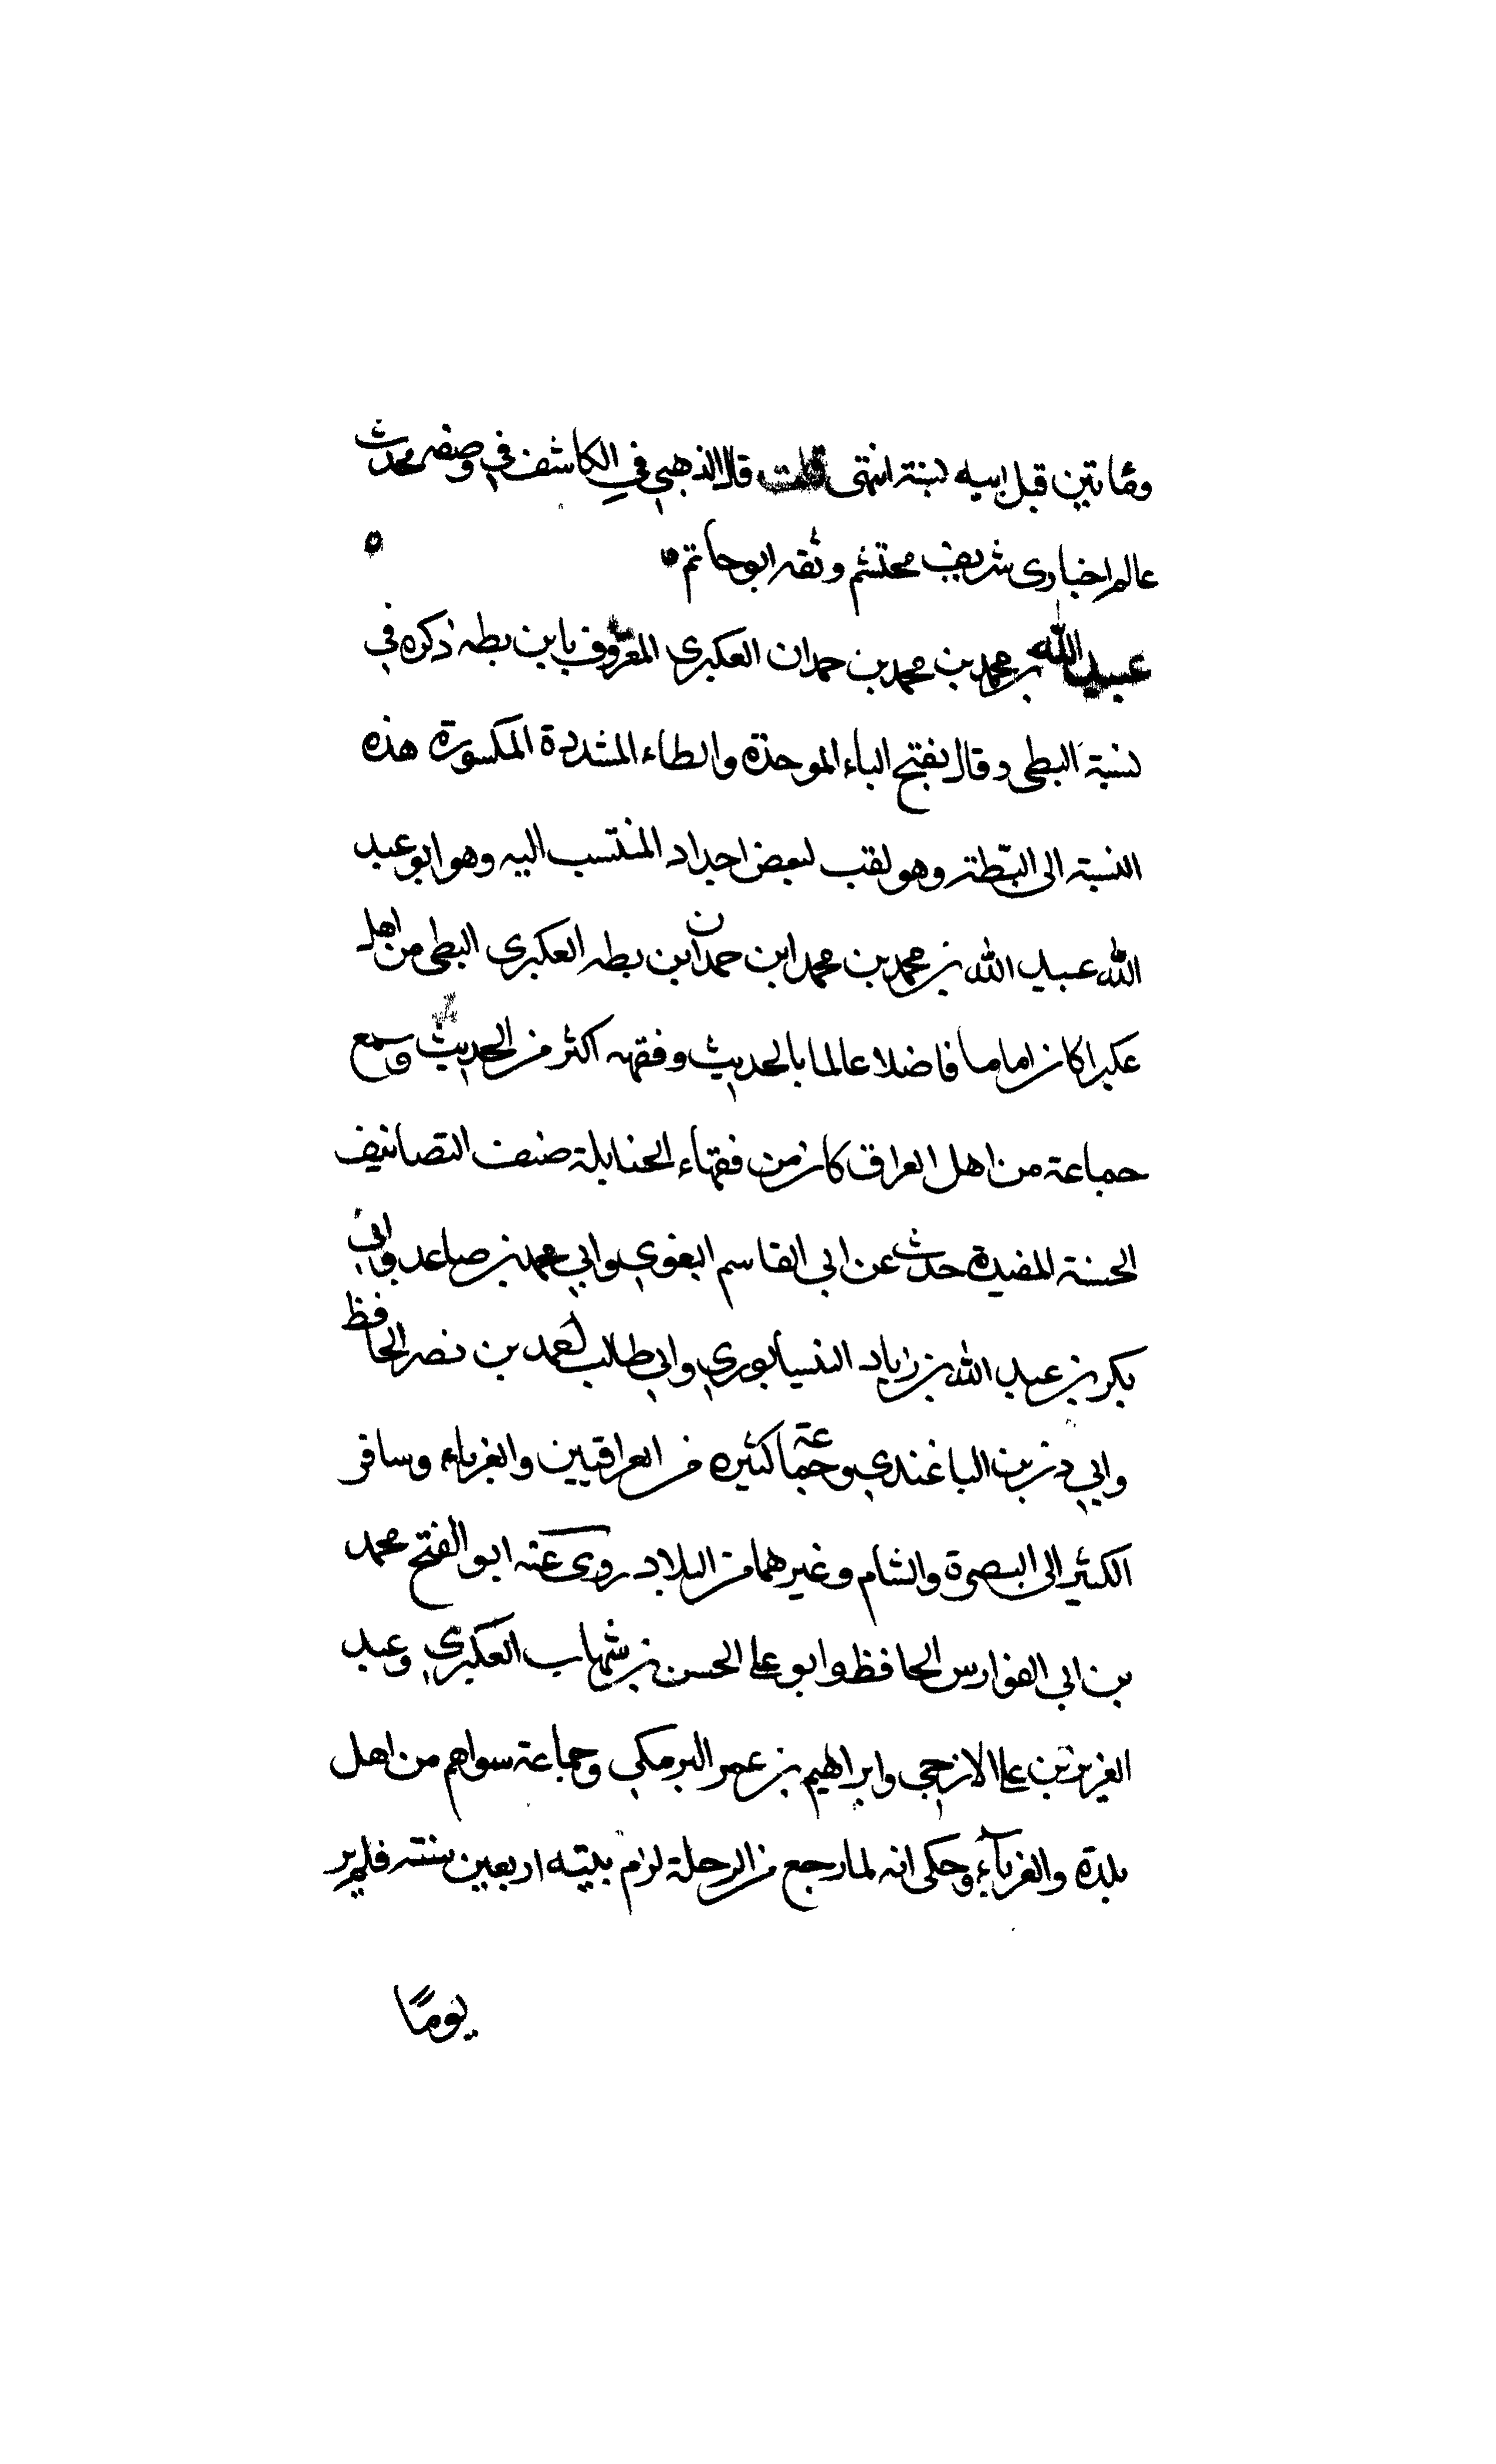 ومائتين قبل ابيه بسنة انتهى قلت قال الذهبي في الكاشف في وصفه محدث
عالم اخباري شريف محتشم وثقه ابو حاتم
عبيد الله بن محمد بن محمد بن حمدان العكبري المعروف بابن بطه ذكره في
نسبة البطي وقال بفتح الباء الموحدة والطاء المشددة المكسورة هذه
النسبة الى البطة وهو لقب لبعض اجداد المنتسب اليه وهو ابو عبد
الله عبيد الله بن محمد بن محمد ابن حمدان ابن بطه العكبري البطي من اهل
عكبرا كان اماما فاضلا عالما بالحديث وفقهه اكثر من الحديث وسمع
جماعة من اهل العراق كان من فقهاء الحنابلة صنف التصانيف
الحسنة المفيدة حدث عن ابي القاسم البغوي وابي محمد بن صاعد وابي
بكر بن عبد الله بن زياد النيسابوري وابي طالب احمد بن نصر الحافظ
وابي ذر بن الباغندي وجماعة كثيره من العراقيين والغرباء وسافر
الكثير الى البصرة والشام وغيرهما من البلاد روى عنه ابو الفتح محمد
بن ابي الفوارس الحافظ وابو علي الحسن بن شهاب العكبري وعبد
العزيز بن علي الازجي وابراهيم بن عمر البرمكي وجماعة سواهم من اهل
بلدة والغرباء وحكى انه لما رجع من الرحلة لزم بيته اربعين سنة فلم ير
يومًا